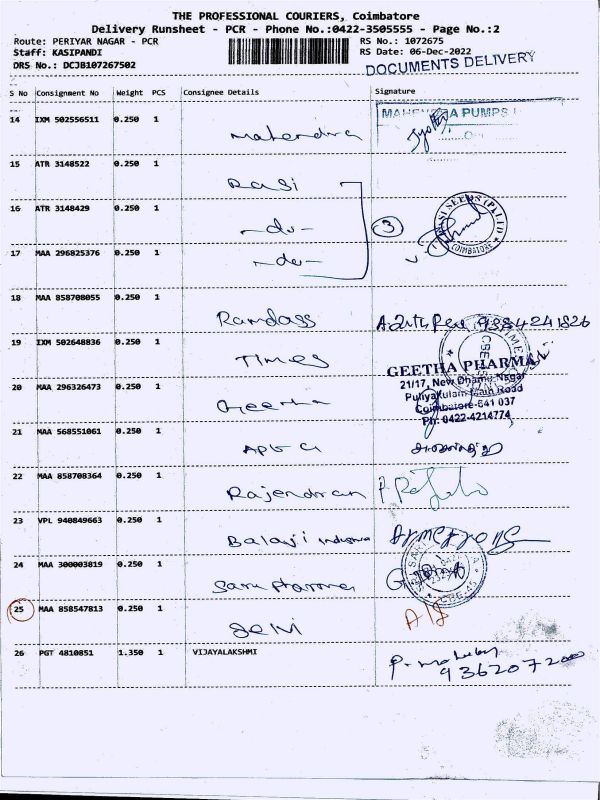 THE PROFESSIONAL COURIERS, Coimbatore
Delivery Runsheet - PCR - Phone No.:0422-3505555 - Page No.:2
Route: PERIYAR NAGAR - PCR RS No.: 1072675
Staff: KASIPANDI RS Date: 06-Dec-2022
DRS No.: DCJB107267502 DOCUMENTS DELIVERY
S No Consignment No Weight PCS Consignee Details Signature
14 IXM 502556511 0.250 1 Mahendira PUMPS
Jyothi
15 ATR 3148522 0.250 1 Rasi
16 ATR 3148429 0.250 1 -do- 3 SEEDS (P) LTD COIMBATORE
17 MAA 296825376 0.250 1 -do-
18 MAA 858708055 0.250 1 Ramdass 9384241826
19 IXM 502648836 0.250 1 Times
GEETHA PHARMA
20 MAA 296326473 0.250 1 Geetha 21/17, New Dhamu Nagar
Puliyakulam Main Road
Coimbatore-641 037
Ph: 0422-4214774
21 MAA 568551061 0.250 1
22 MAA 858708364 0.250 1 Rajendran
23 VPL 940849663 0.250 1 Balaji
24 MAA 300003819 0.250 1 Saru Pharma
25 MAA 858547813 0.250 1 Selvi
26 PGT 4810851 1.350 1 VIJAYALAKSHMI